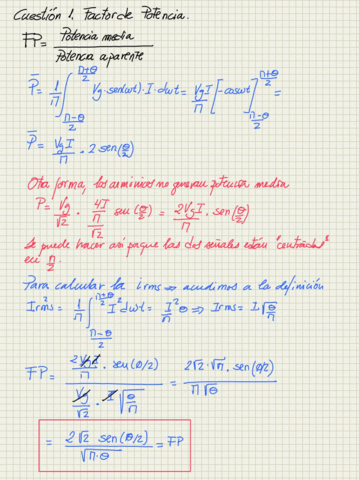 Cuestión 1. Factor de Potencia.
FP = Potencia media / Potencia aparente
P̄ = 1/π ∫_{(π-θ)/2}^{(π+θ)/2} Vg·sen(wt)·I·dwt = VgI/π [-coswt]_{(π-θ)/2}^{(π+θ)/2} =
P̄ = VgI/π · 2 sen(θ/2)
Otra forma, los armónicos no generan potencia media
P = Vg/√2 · 4I/(π√2) sen(θ/2) = 2VgI/π · sen(θ/2)
Se puede hacer así porque las dos señales están "centradas"
en π/2
Para calcular la irms → acudimos a la definición
Irms² = 1/π ∫_{(π-θ)/2}^{(π+θ)/2} I² dwt = I²θ/π ⇒ Irms = I√(θ/π)
FP = (2VgI/π · sen(θ/2)) / (Vg/√2 · I√(θ/π)) = 2√2·√π · sen(θ/2) / π√θ
= 2√2 sen(θ/2) / √(π·θ) = FP